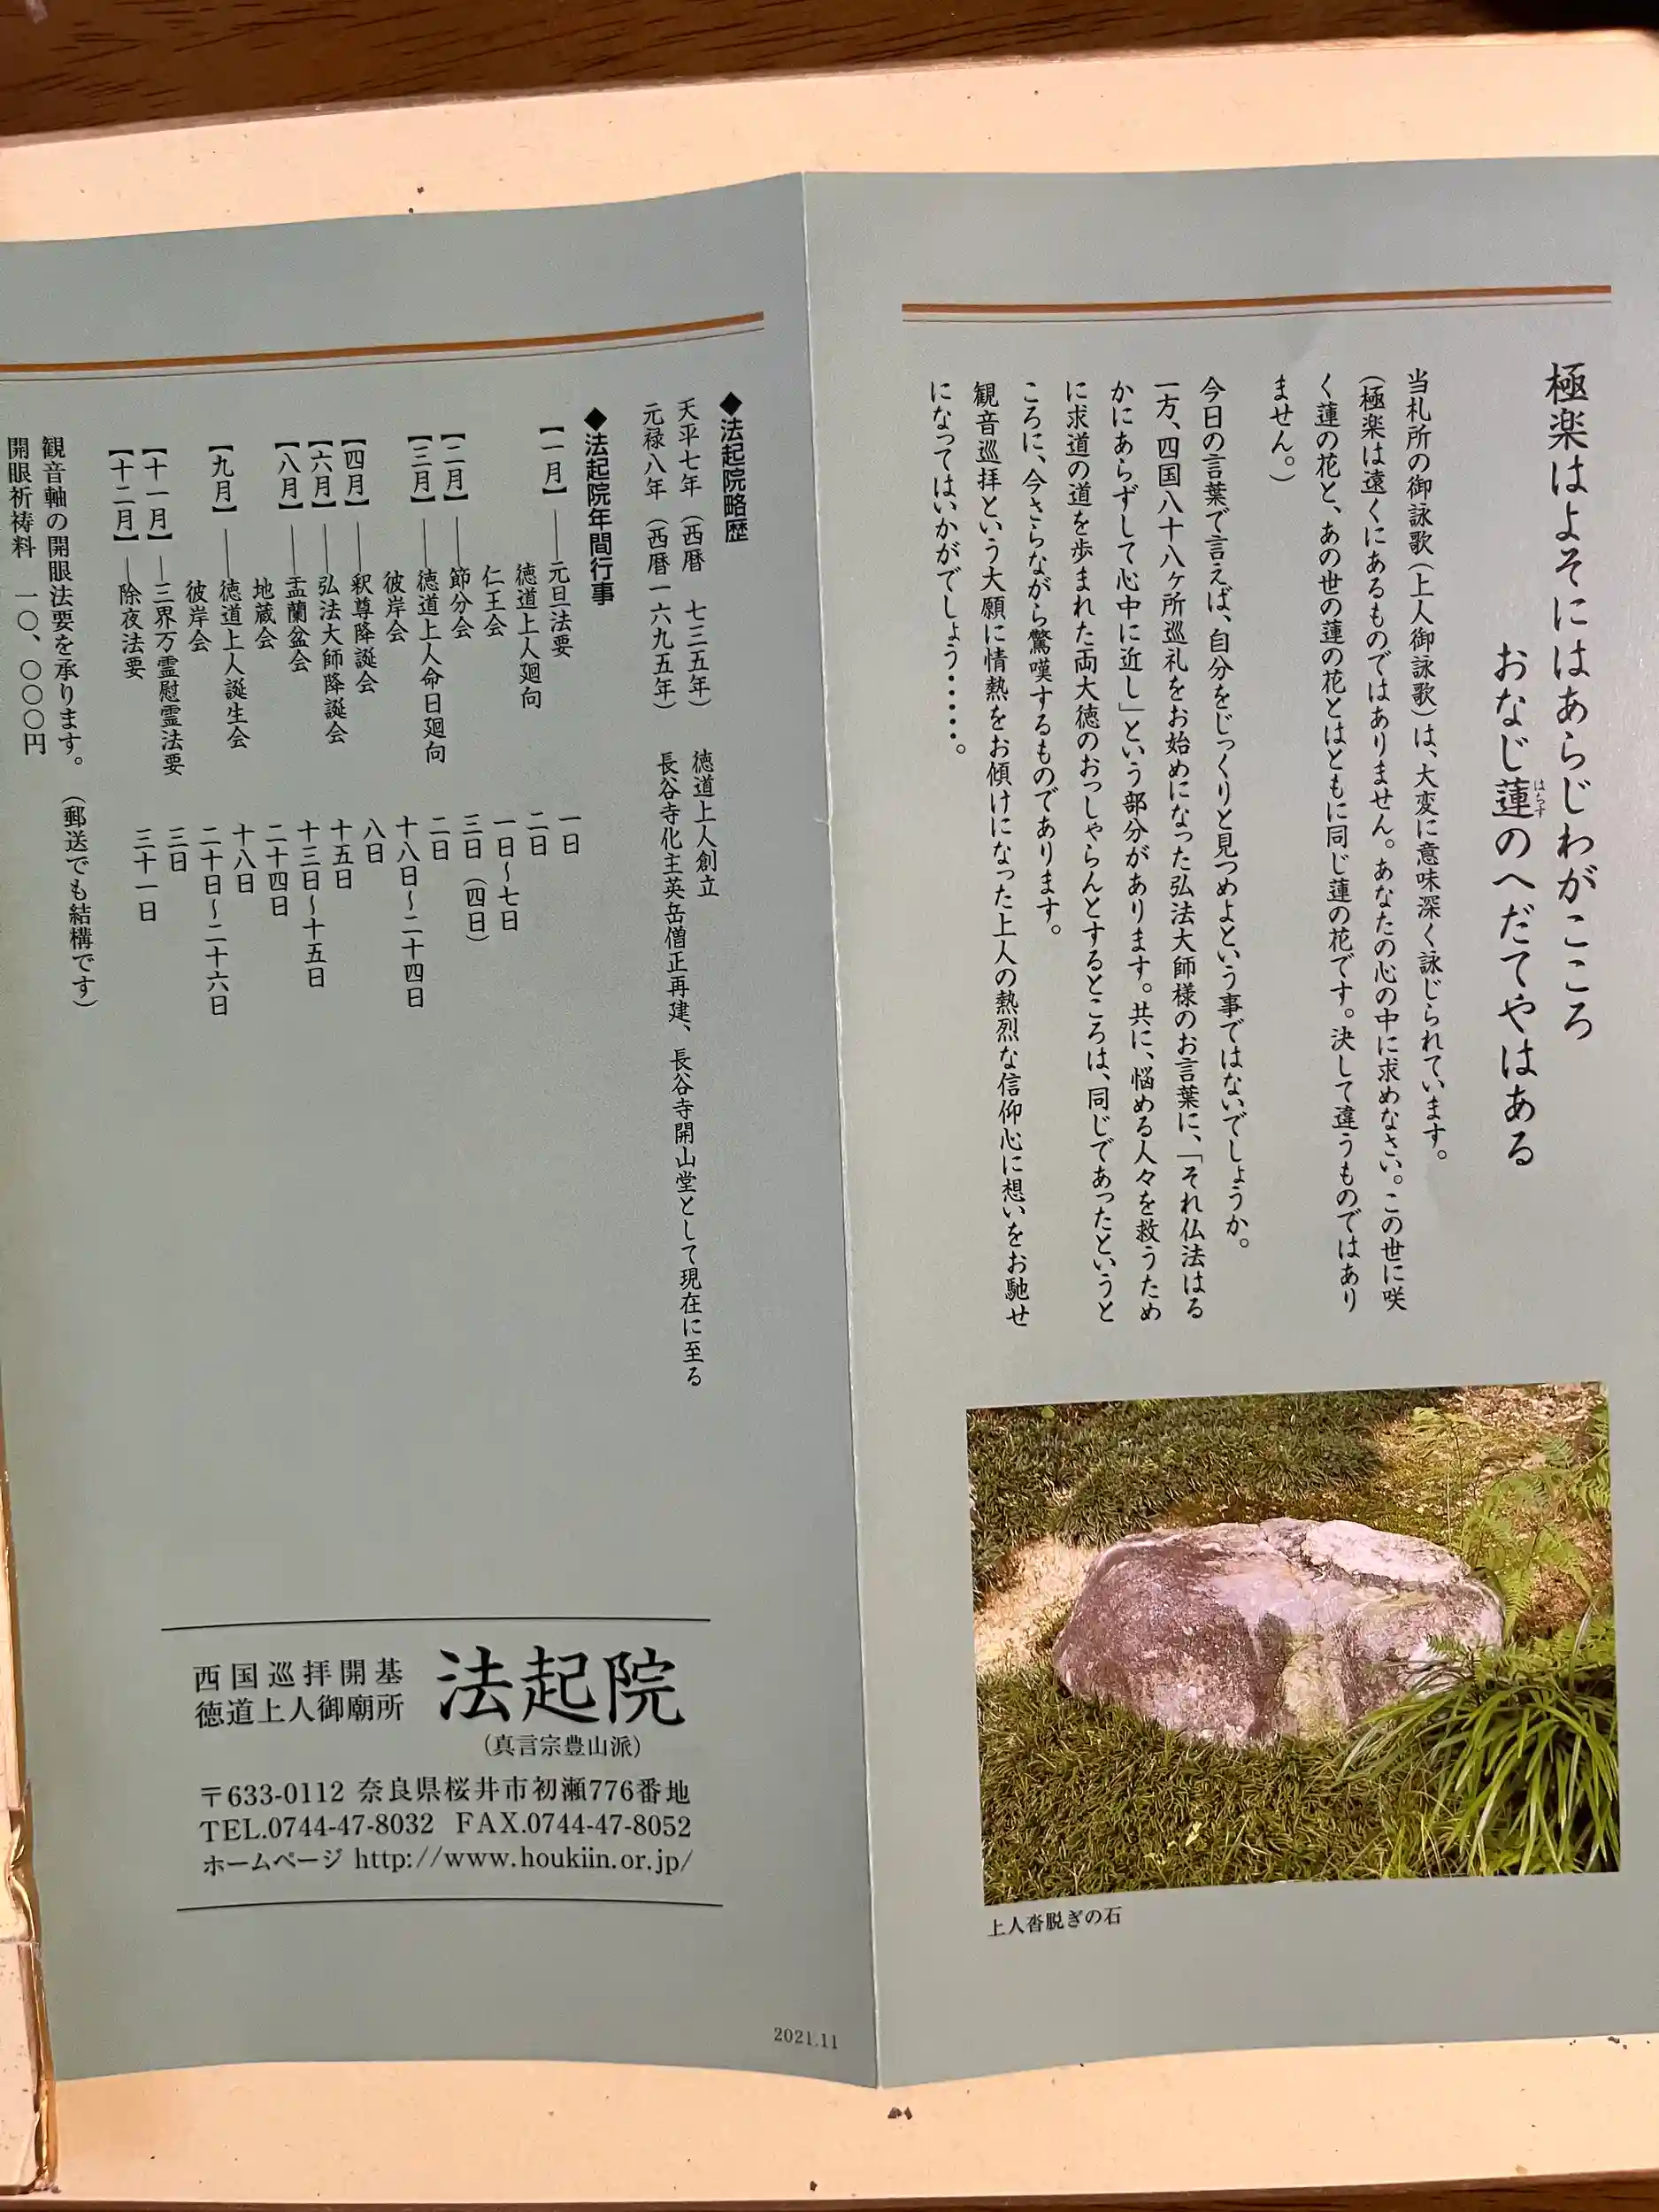 極楽はよそにはあらじわがこころ
おなじ蓮のへだてやはある
はちす
当札所の御詠歌(上人御詠歌)は、大変に意味深く詠じられています。
(極楽は遠くにあるものではありません。あなたの心の中に求めなさい。この世に咲
く蓮の花と、あの世の蓮の花とはともに同じ蓮の花です。決して違うものではあり
ません。)
今日の言葉で言えば、自分をじっくりと見つめよという事ではないでしょうか。
一方、四国八十八ヶ所巡礼をお始めになった弘法大師様のお言葉に、「それ仏法はる
かにあらずして心中に近し」という部分があります。共に、悩める人々を救うため
に求道の道を歩まれた両大徳のおっしゃらんとするところは、同じであったというと
ころに、今さらながら驚嘆するものであります。
観音巡拝という大願に情熱をお傾けになった上人の熱烈な信仰心に想いをお馳せ
になってはいかがでしょう・・・・・。
上人沓脱ぎの石
◆法起院略歴
天平七年(西暦 七三五年) 徳道上人創立
元禄八年(西暦一六九五年) 長谷寺化主英岳僧正再建、長谷寺開山堂として現在に至る
◆法起院年間行事
【一月】――元旦法要 一日
徳道上人廻向 二日
仁王会 一日~七日
【二月】――節分会 三日(四日)
【三月】――徳道上人命日廻向 二日
彼岸会 十八日~二十四日
【四月】――釈尊降誕会 八日
【六月】――弘法大師降誕会 十五日
【八月】――盂蘭盆会 十三日~十五日
地蔵会 二十四日
【九月】――徳道上人誕生会 十八日
彼岸会 二十日~二十六日
【十一月】―三界万霊慰霊法要 三日
【十二月】―除夜法要 三十一日
観音軸の開眼法要を承ります。(郵送でも結構です)
開眼祈祷料 一〇、〇〇〇円
西国巡拝開基
徳道上人御廟所
法起院
(真言宗豊山派)
〒633-0112 奈良県桜井市初瀬776番地
TEL.0744-47-8032 FAX.0744-47-8052
ホームページ http://www.houkiin.or.jp/
2021.11